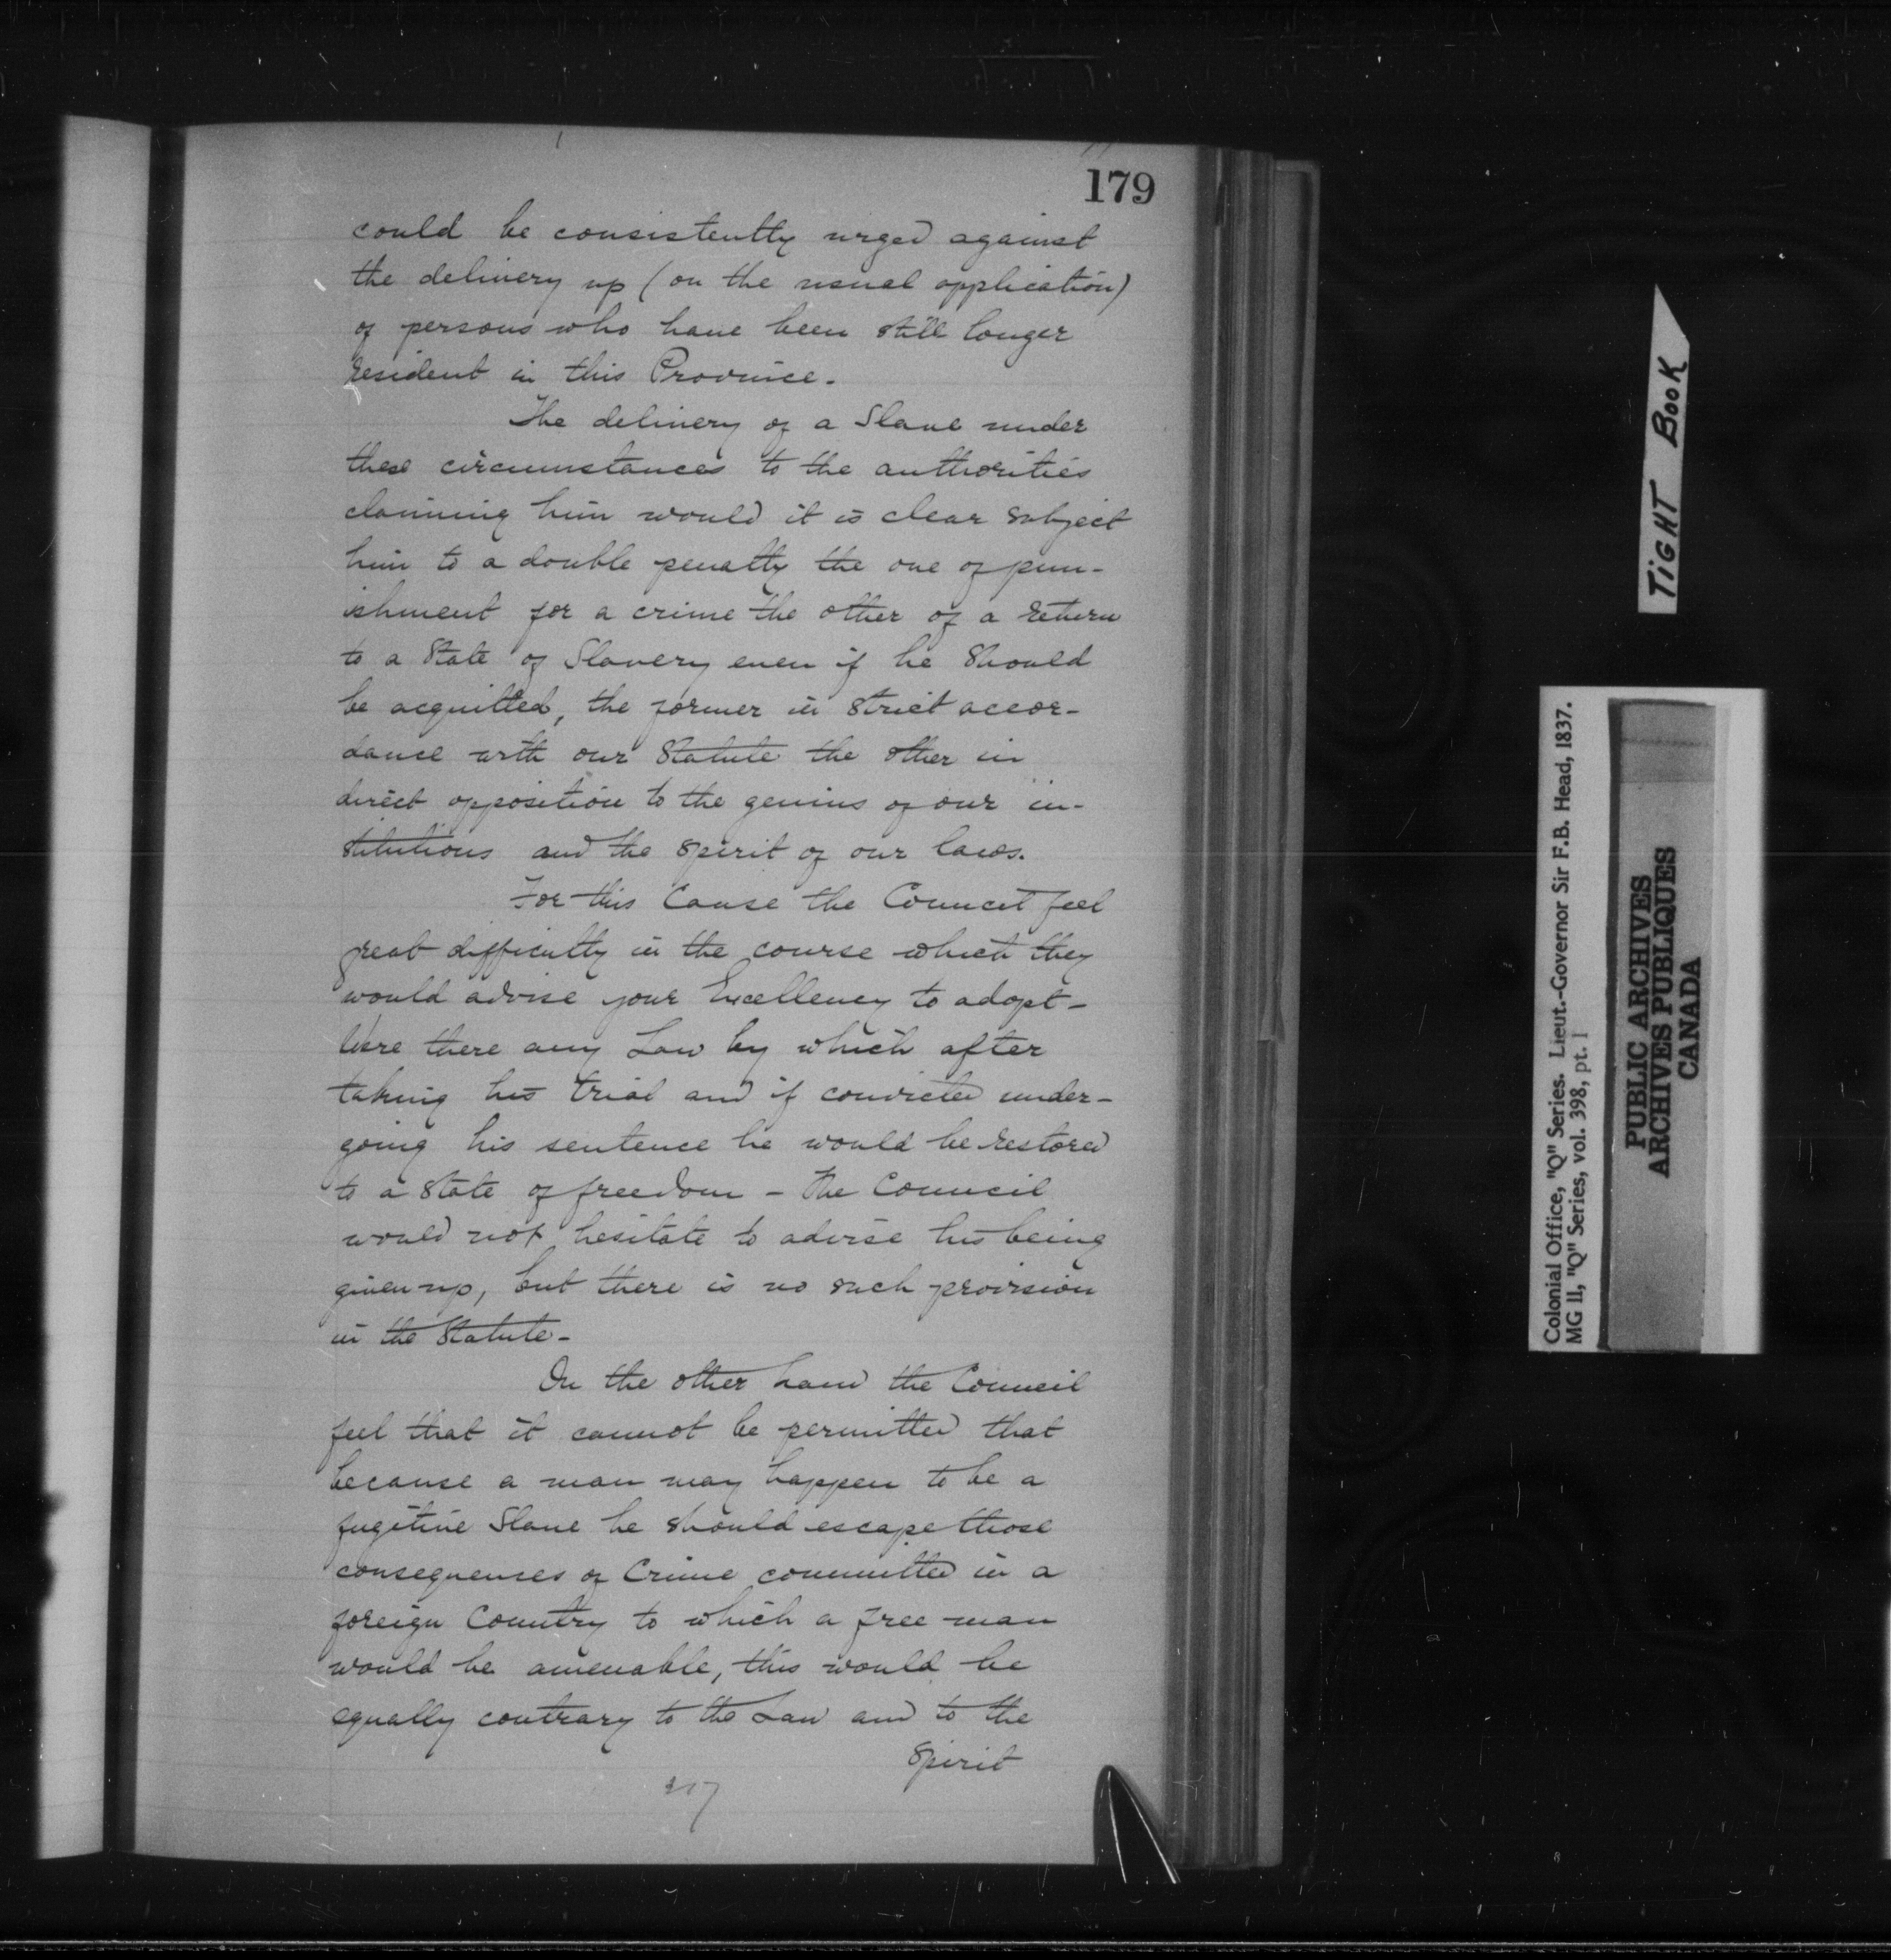 179
could be consistently urged against
the delivery up (on the usual application)
of persons who have been still longer
resident in this Province.
The delivery of a Slave under
these circumstances to the authorities
claiming him would it is clear subject
him to a double penalty the one of pun-
ishment for a crime the other of a return
to a State of Slavery even if he should
be acquitted, the former in strict accor-
dance with our Statute the other in
direct opposition to the genius of our in-
stitutions and the spirit of our laws.
For this Cause the Council feel
great difficulty in the course which they
would advise your Excellency to adopt -
Were there any Law by which after
taking his trial and if convicted under-
going his sentence he would be restored
to a state of freedom - The Council
would not hesitate to advise his being
given up, but there is no such provision
in the Statute -
On the other hand the Council
feel that it cannot be permitted that
because a man may happen to be a
fugitive Slave he should escape those
consequences of Crime committed in a
foreign Country to which a free man
would be amenable, this would be
equally contrary to the Law and to the
Spirit
217
TIGHT BOOK
Colonial Office, "Q" Series. Lieut.-Governor Sir F.B. Head, 1837.
MG 11, "Q" Series, vol. 398, pt. 1
PUBLIC ARCHIVES
ARCHIVES PUBLIQUES
CANADA